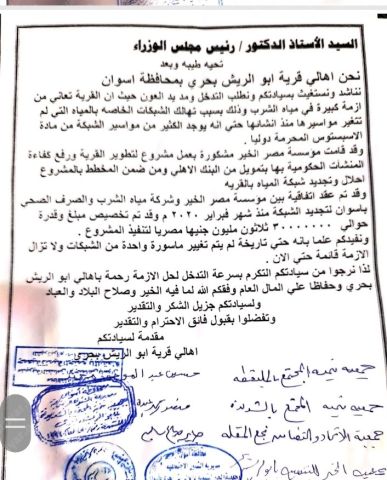 السيد الأستاذ الدكتور / رئيس مجلس الوزراء
تحيه طيبه وبعد
نحن اهالي قرية ابو الريش بحري بمحافظة اسوان
نناشد ونستغيث بسيادتكم ونطلب التدخل ومد يد العون حيث ان القرية تعاني من
ازمة كبيرة في مياه الشرب وذلك بسبب تهالك الشبكات الخاصه بالمياه التي لم
تتغير مواسيرها منذ انشائها حتي انه يوجد الكثير من مواسير الشبكة من مادة
الاسبستوس المحرمة دوليا .
وقد قامت مؤسسة مصر الخير مشكورة بعمل مشروع لتطوير القرية ورفع كفاءة
المنشآت الحكومية بها بتمويل من البنك الاهلي ومن ضمن المخطط بالمشروع
احلال وتجديد شبكة المياه بالقريه
وقد تم عقد اتفاقية بين مؤسسة مصر الخير وشركة مياه الشرب والصرف الصحي
باسوان لتجديد الشبكة منذ شهر فبراير ٢٠٢٠ م وقد تم تخصيص مبلغ وقدرة
حوالي ٣٠٠٠٠٠٠٠ ثلاثون مليون جنيها مصريا لتنفيذ المشروع .
ونفيدكم علما بانه حتي تاريخة لم يتم تغيير ماسورة واحدة من الشبكات ولا تزال
الازمة قائمة حتي الان .
لذا نرجوا من سيادتكم التكرم بسرعة التدخل لحل الازمة رحمة باهالي ابو الريش
بحري وحفاظا علي المال العام وفقكم الله لما فيه الخير وصلاح البلاد والعباد
ولسيادتكم جزيل الشكر والتقدير
وتفضلوا بقبول فائق الاحترام والتقدير
مقدمة لسيادتكم
اهالي قرية ابو الريش بحري
جمعية تنمية المجتمع
جمعية تنمية المجتمع
جمعية